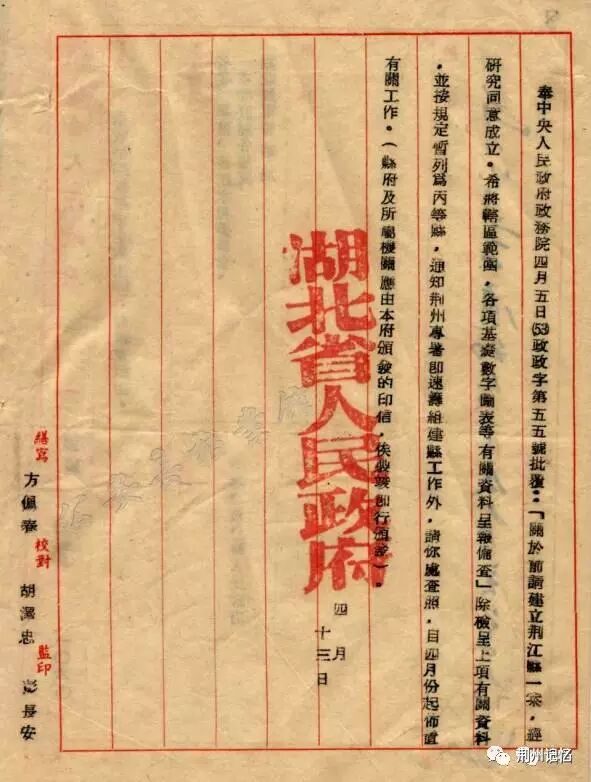 奉中央人民政府政務院四月五日(53)政政字第五五號批覆：「關於前請建立荆江縣一案，經
研究同意成立。希將轄區範圍，各項基礎數字圖表等有關資料呈報備查」除檢呈上項有關資料
，並按規定暫列爲丙等縣，通知荆州專署卽速籌組建縣工作外，請你處查照，自四月份起佈置
有關工作。（縣府及所屬機關應由本府頒發的印信，俟製發卽行頒發）。
湖北省人民政府
四月
十三日
繕寫 方佩春 校對 胡潔忠 監印 彭長安
荆州记忆